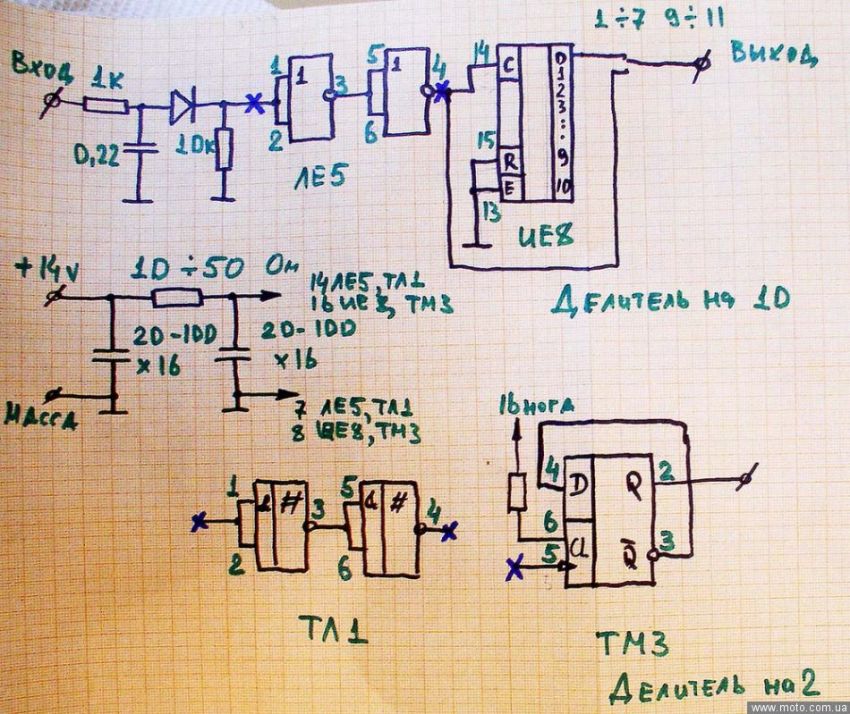 1÷7 9÷11
ВХОД 1К
ВЫХОД
0,22
10К
1
2
1
3
5
6
1
4
ЛЕ5
14
15
13
C
R
E
0
1
2
3
9
10
ИЕ8
Делитель на 10
+14V
10÷50 Ом
14 ЛЕ5, ТЛ1
16 ИЕ8, ТМ3
20-100
×16
20-100
×16
МАССА
7 ЛЕ5, ТЛ1
8 ИЕ8, ТМ3
16 нога
1
2
#
3
5
6
#
4
ТЛ1
4
D
Q
2
6
5
CL
Q̅
3
ТМ3
Делитель на 2
www.moto.com.ua